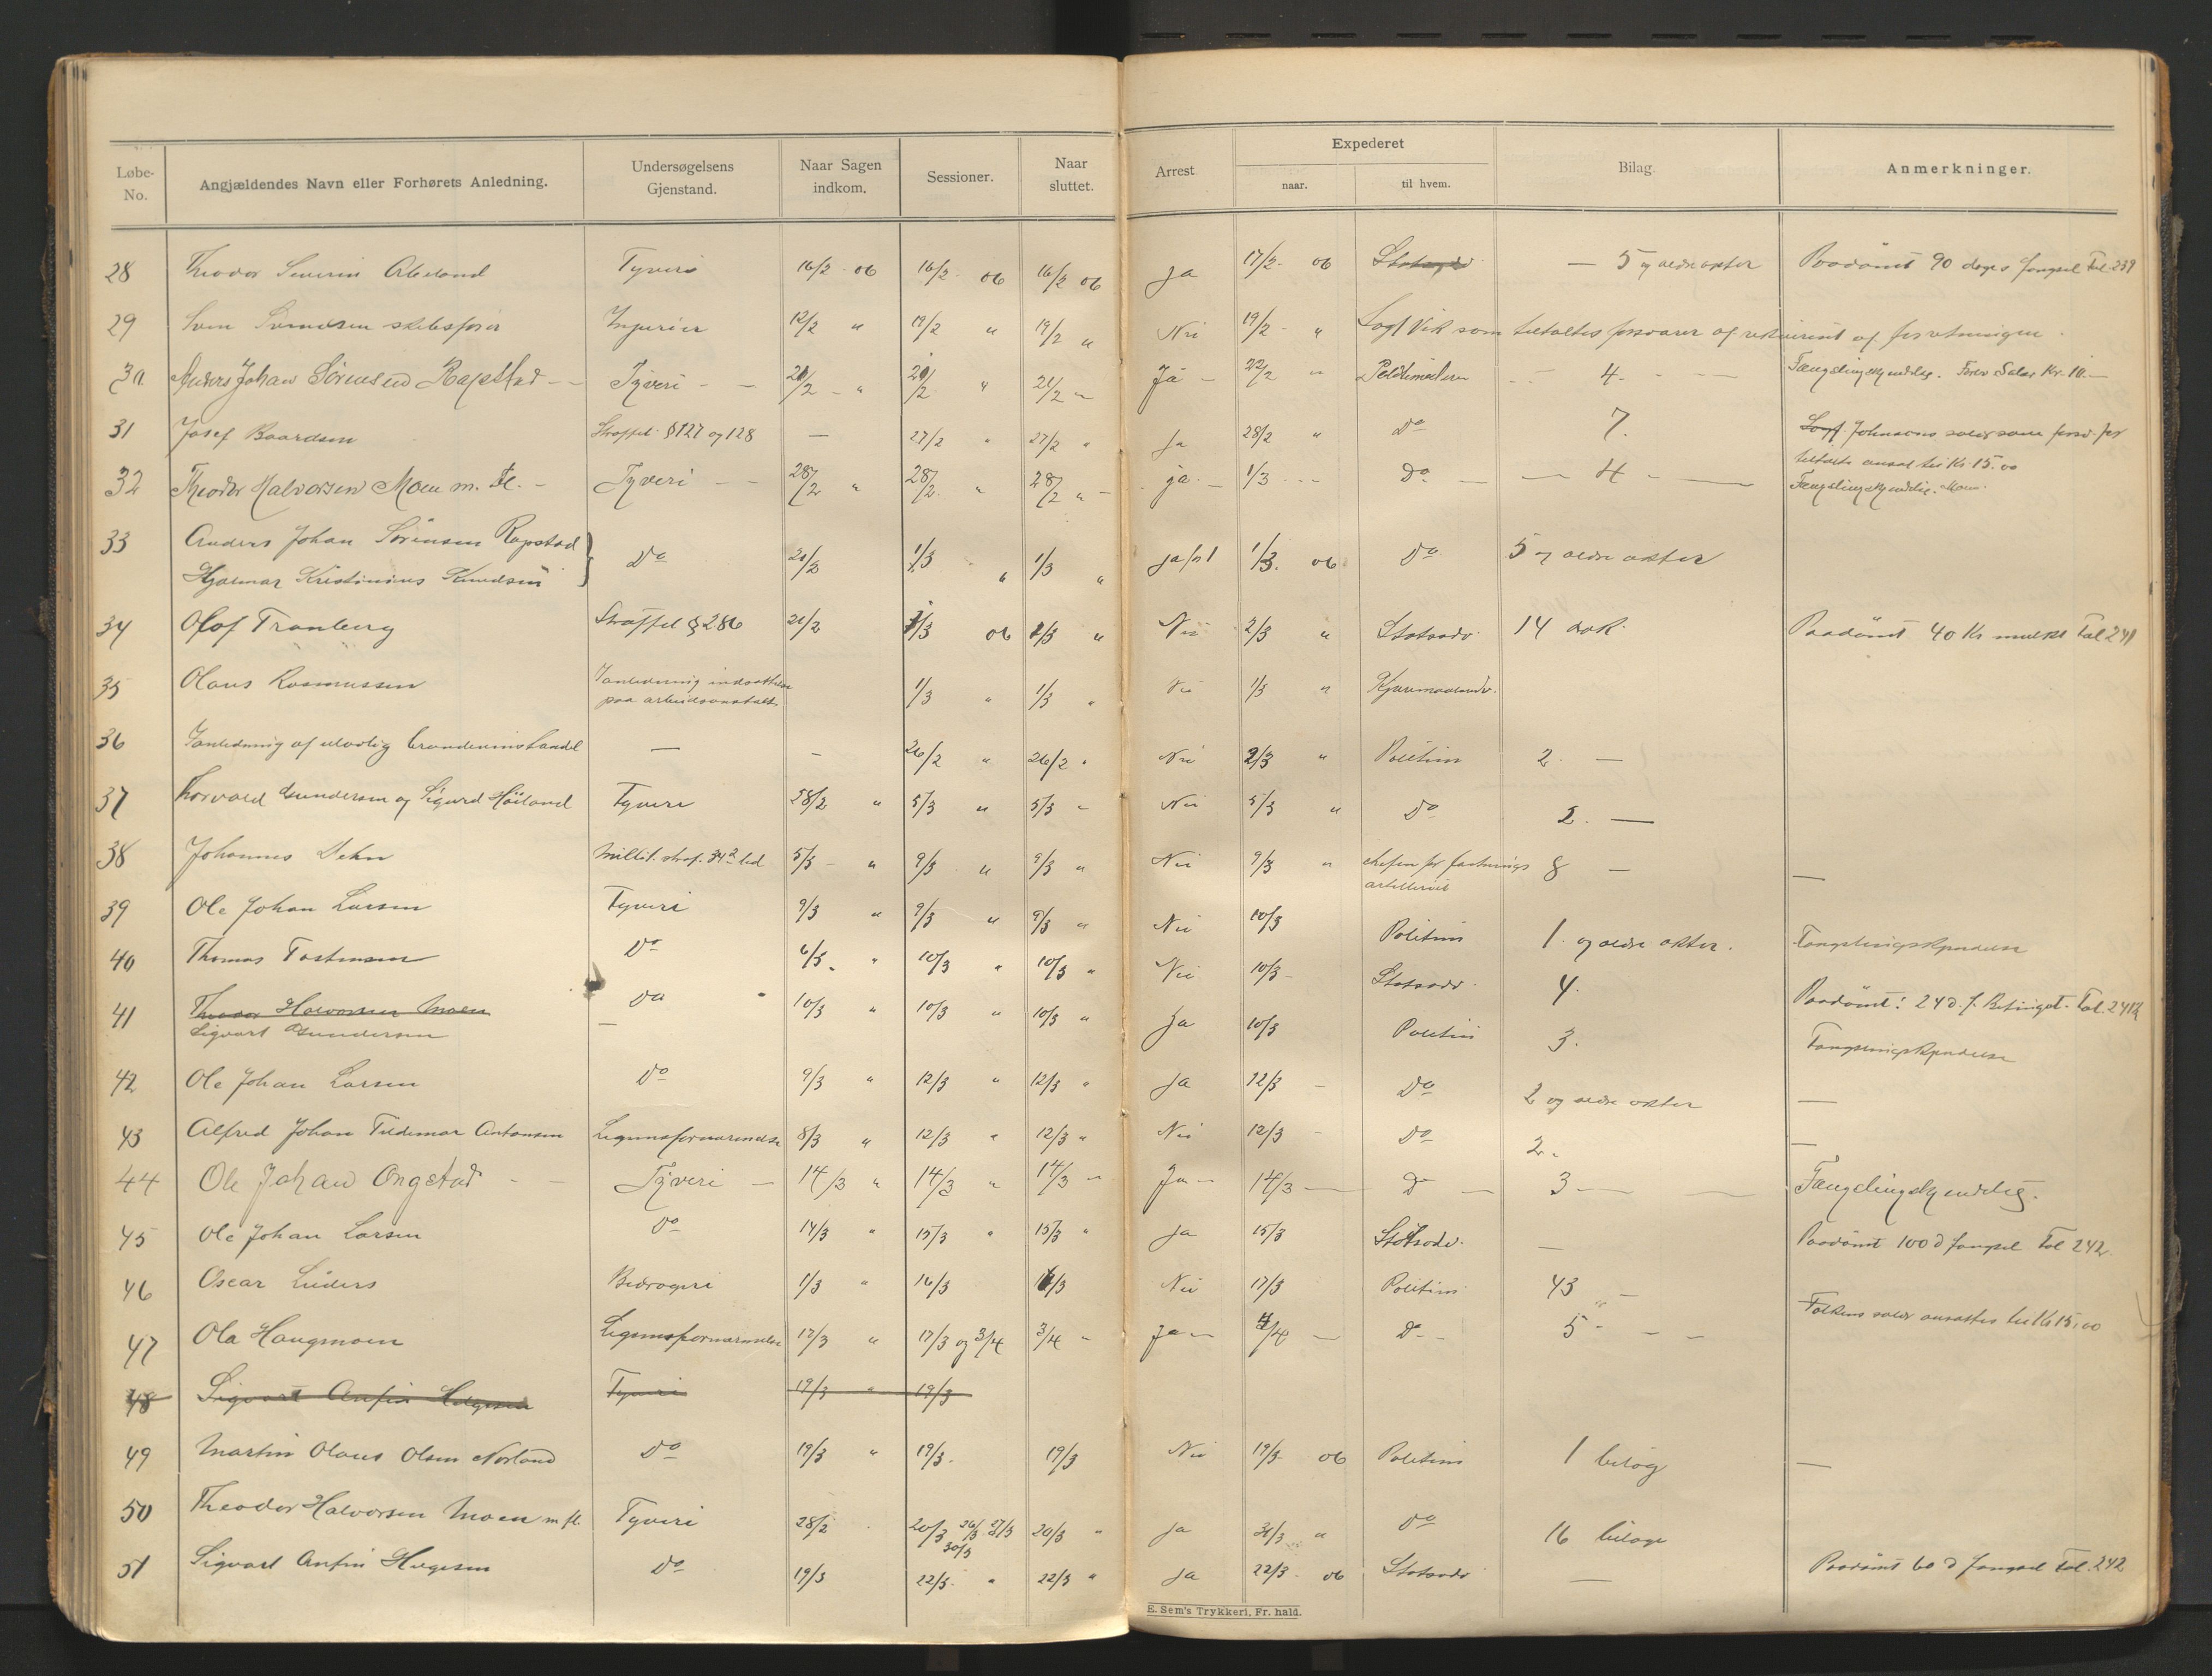 Løbe-No. Angjældendes Navn eller Forhørets Anledning. Undersøgelsens Gjenstand. Naar Sagen indkom. Sessioner. Naar sluttet. Arrest Expederet naar. til hvem. Bilag. Anmerkninger.
28 Theodor Severin Abeland Tyveri 16/2 06 16/2 06 16/2 06 ja 17/2 06 Statsadv. — 5 og ældre akter Paadömt 90 dages fængsel Fol 239
29 Sven Svendsen skibsfører Injurier 12/2 " 19/2 " 19/2 " Nei 19/2 " Sagf Vik som tiltaltes forsvarer og rekvirent af forretningen.
30 Anders Johan Sörensen Rapstad — Tyveri — 21/2 " 21/2 " 21/2 " Ja — 22/2 " Politimesteren — 4 — Fængslingskjendelse. Forsv Salær Kr. 10.—
31 Josef Baardsen Straffel. § 127 og 128 — 27/2 " 27/2 " Ja 28/2 " Do 7. Sagf. Johnsens salær som forsv. for tiltalte ansat til Kr. 15.00
32 Theodor Halvorsen Moen m. fl. — Tyveri — 28/2 " 28/2 " 28/2 " — ja — 1/3 — Do — 4 — Fængslingskjendelse. Moen.
33 Anders Johan Sörensen Rapstad
Hjalmar Kristinius Knudsen } Do 21/2 1/3 " 1/3 " ja 1/3. 06 Do 5 og ældre akter
34 Olof Tranberg Straffel § 286 21/2 1/3 06 1/3 " Nei 2/3 " Statsadv. 14 dok. Paadömt 40 Kr mulkt Fol 241
35 Olaus Rasmussen I anledning indsættelse paa arbeidsanstalt 1/3 " 1/3 " Nei 1/3 "
36 I anledning af ulovlig brændevinshandel — — 26/2 " 26/2 " Nei 2/3 " Politim 2. —
37 Thorvald Gundersen og Sigurd Höiland Tyveri 28/2 " 5/3 " 5/3 " Nei 5/3 " Do 2. —
38 Johannes Dehn Millit. straf. 34 2 led 5/3 " 9/3 " 9/3 " Nei 9/3 " chefen for fæstnings artilleriet 8 — —
39 Ole Johan Larsen Tyveri 9/3 " 9/3 " 9/3 " Nei 10/3 Politim 1. og ældre akter. Fængslingskjendelse
40 Thomas Tostensen Do 6/3. " 10/3 " 10/3 " Nei 10/3 Statsadv. 4. Paadömt: 24 d. f. Betinget. Fol. 241
41 Theodor Halvorsen Moen
Sigvart Gundersen Do — 10/3 " 10/3 " 10/3 " Ja 10/3 Politim 3. Fængslingskjendelse
42 Ole Johan Larsen Do 9/3 " 12/3 " 12/3 " Ja 12/3 — Do 2 og ældre akter —
43 Alfred Johan Tidemar Antonsen Legemsfornærmelse 8/3 " 12/3 " 12/3 " Nei 12/3 — Do 2. —
44 Ole Johan Ongstad — Tyveri — 14/3 " 14/3 " 14/3 — Ja — 14/3 — Do — 3 — Fængslingskjendelse.
45 Ole Johan Larsen Do 14/3 " 15/3 " 15/3 " Ja 15/3 Statsadv. — Paadömt 100 d fængsel Fol 242
46 Oscar Lüders Bedrageri 1/3 " 16/3 16/3 Nei 17/3 Politim 43 —
47 Ola Haugmoen Legemsfornærmelse 17/3 " 17/3 og 3/4 3/4 — Ja — 4/4 — Do — 5 — Tolkens salær ansattes til Kr 15,00
48 Sigvart Anfin Helgesen Tyveri 19/3 " 19/3
49 Martin Olaus Olsen Norland Do 19/3 " 19/3. 19/3 Nei 19/3 06 Politim 1 bilag —
50 Theodor Halvorsen Moen m fl. Tyveri 28/2 20/3 26/3 27/3 30/3 20/3 " ja 31/3 " Do 16 bilage
51 Sigvart Anfin Helgesen Do 19/3 22/3. " 22/3 " ja 22/3 06 Statsadv — Paadömt 60 d fængsel Fol. 242
E. Sem's Trykkeri, Fr. hald.